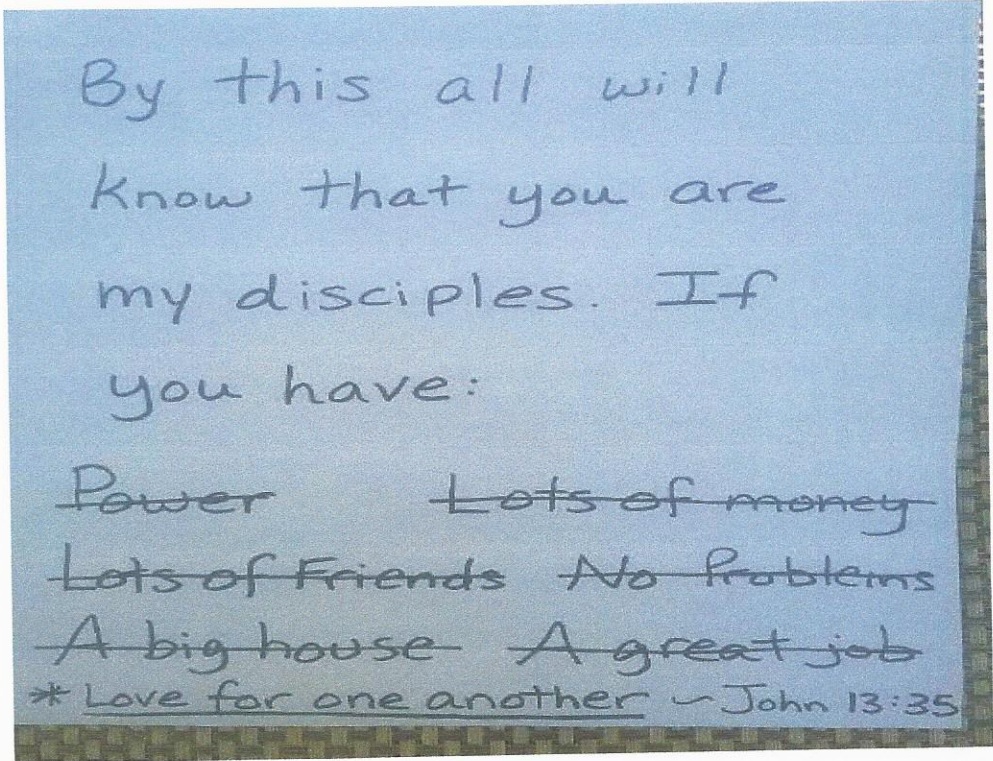 By this all will
know that you are
my disciples. If
you have:
Power Lots of money
Lots of Friends No Problems
A big house A great job
* Love for one another ~ John 13:35